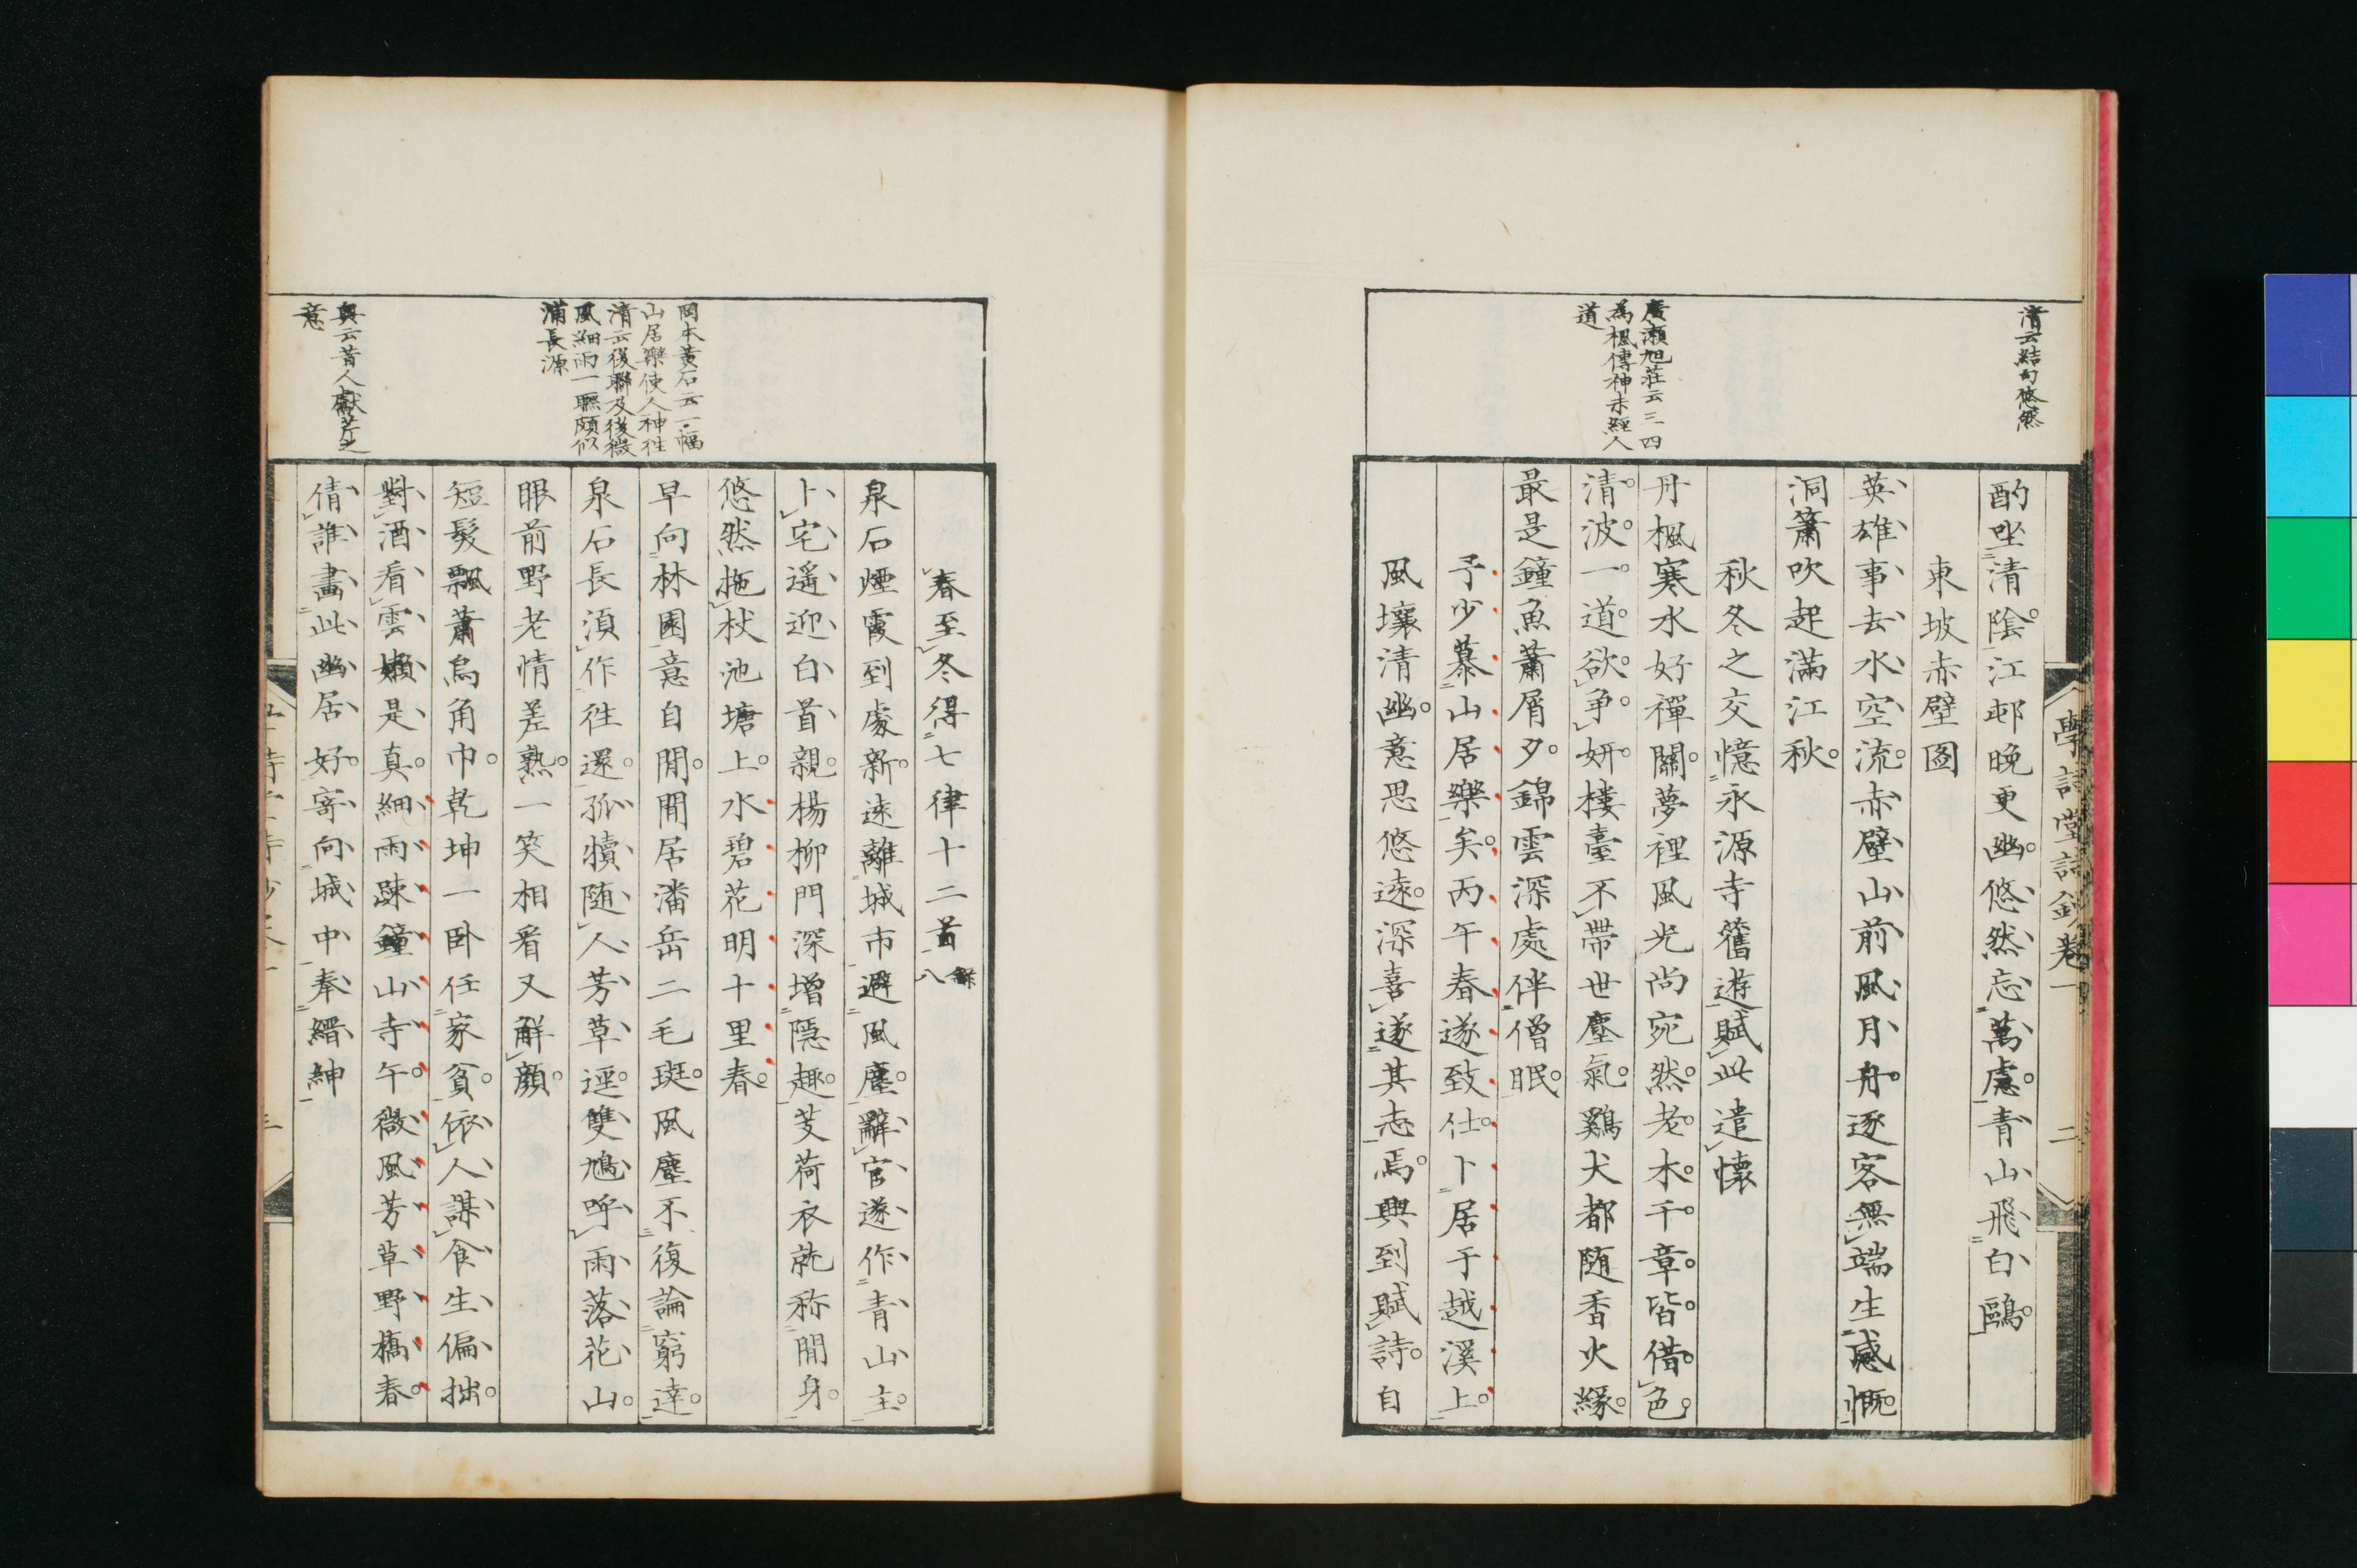 清云結句悠然
廣瀬旭荘云三四
為楓傳神未經人
道
學詩堂詩鈔卷一
二
酌坐清陰江邨晚更幽悠然忘萬慮青山飛白鷗
東坡赤壁圖
英雄事去水空流赤壁山前風月舟逐客無端生感慨
洞簫吹起滿江秋
秋冬之交憶永源寺舊遊賦此遣懷
丹楓寒水好禪關夢裡風光尚宛然老木千章皆借色
清波一道欲爭妍樓臺不帶世塵氣鷄犬都随香火緣
最是鐘魚蕭屑夕錦雲深處伴僧眠
予少慕山居樂矣丙午春遂致仕卜居于越溪上
風壤清幽意思悠遠深喜遂其志焉興到賦詩自
岡本黄石云一幅
山居樂使人神往
清云後聯及後微
風細雨一聯頗似
浦長源
輿云昔人獻芹之
意
春至冬得七律十二首録八
泉石煙霞到處新遠離城市避風塵辭官遂作青山主
卜宅遥迎白首親楊柳門深增隠趣芰荷衣就称閒身
悠然拖杖池塘上水碧花明十里春
早向林園意自閒閒居潘岳二毛斑風塵不復論窮達
泉石長須作往還孤犢随人芳草逕雙鳩呼雨落花山
眼前野老情差熟一笑相看又解顔
短髮飄蕭烏角巾乾坤一卧任家貧依人謀食生偏拙
對酒看雲嬾是真細雨踈鐘山寺午微風芳草野橋春
倩誰畵此幽居好寄向城中奉縉紳
三